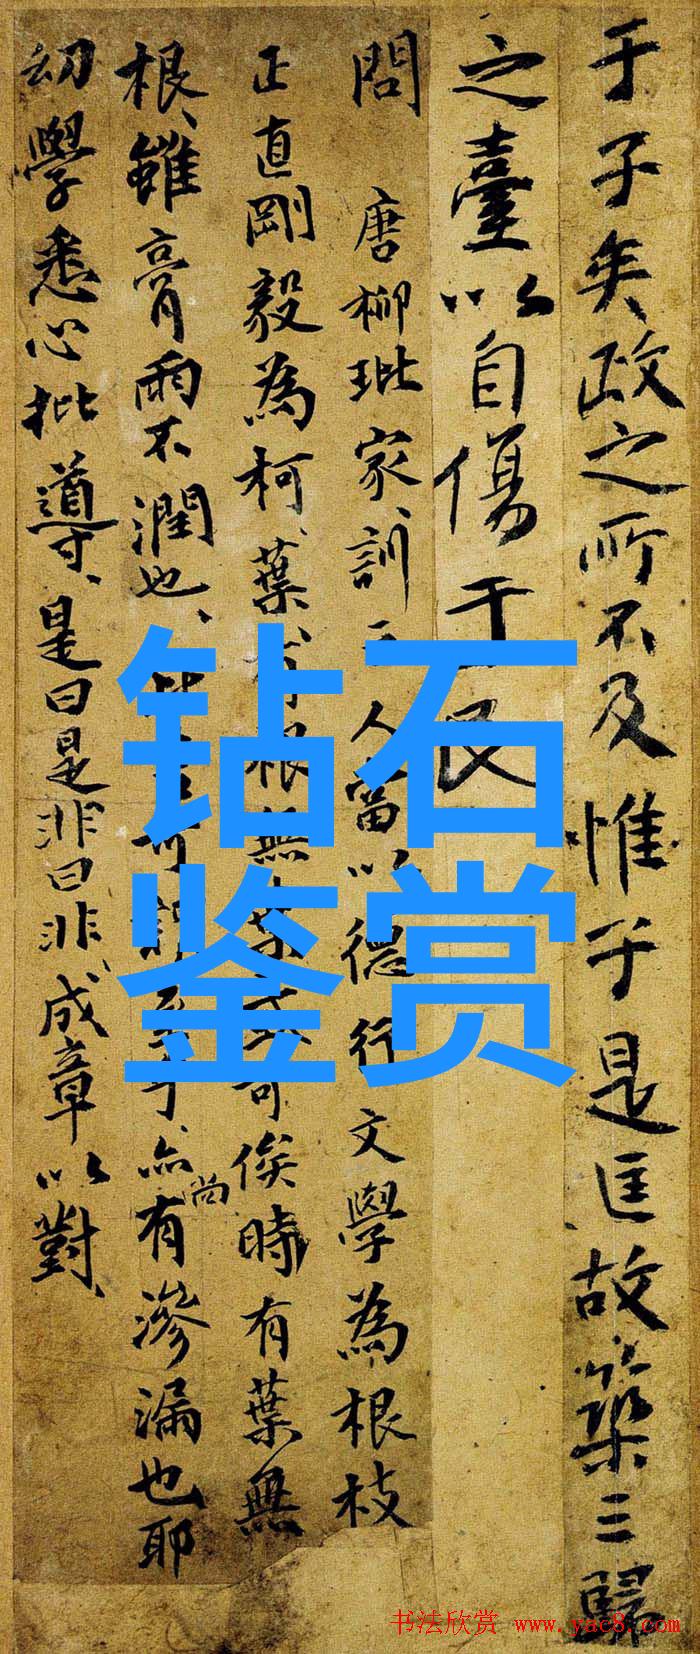 于子矣政之所不及惟于是匡故築三歸
之臺以自傷于民
問 唐柳玭家訓人當以德行文學為根枝
正直剛毅為柯、葉有根無葉或可俟時有葉無
根、雖膏雨不潤也、亦尚有滲漏也耶
幼學悉心批導、是曰是非曰非、成章以對、
钻石
鉴赏
书法欣赏 www.yac8.com